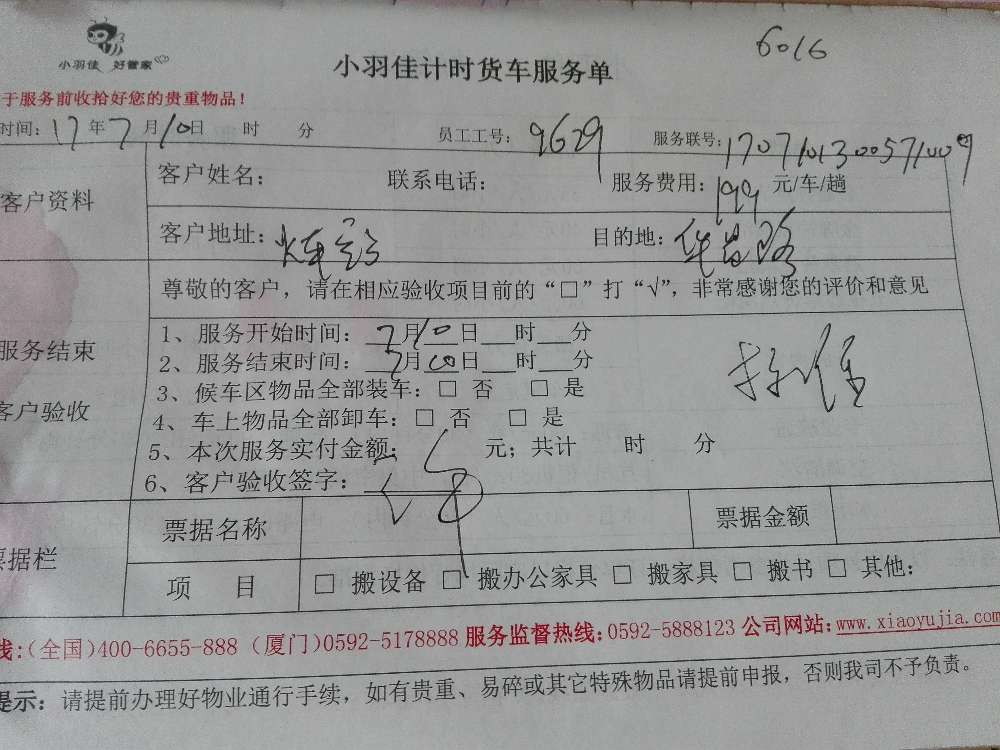 6016
小羽佳 好管家
小羽佳计时货车服务单
于服务前收拾好您的贵重物品！
时间：17年7月10日 时 分 员工工号：9629 服务联号：1707101300571009
客户资料
客户姓名： 联系电话： 服务费用：199元/车/趟
客户地址：火车 目的地：华昌路
尊敬的客户，请在相应验收项目前的“□”打“√”，非常感谢您的评价和意见
服务结束
客户验收
1、服务开始时间：7月10日 时 分
2、服务结束时间：7月10日 时 分
3、候车区物品全部装车：□ 否 □ 是
4、车上物品全部卸车：□ 否 □ 是
5、本次服务实付金额： 元；共计 时 分
6、客户验收签字：
票据栏
票据名称 票据金额
项 目 □ 搬设备 □ 搬办公家具 □ 搬家具 □ 搬书 □ 其他：
线：(全国)400-6655-888 (厦门)0592-5178888 服务监督热线：0592-5888123 公司网站：www.xiaoyujia.com
提示：请提前办理好物业通行手续，如有贵重、易碎或其它特殊物品请提前申报，否则我司不予负责。